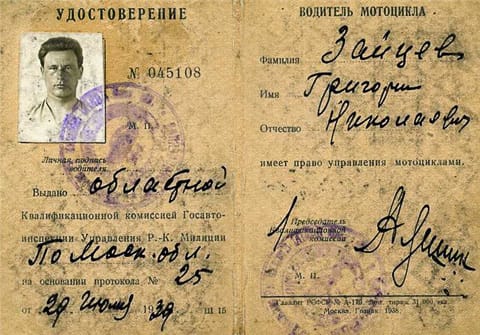 УДОСТОВЕРЕНИЕ
№ 045108
М. П.
Личная подпись
водителя
Выдано областной
Квалификационной комиссией Госавто-
инспекции Управления Р.-К. Милиции
По Моск. обл.
на основании протокола № 25
от 29 июня 1939 г. Ш 15
ВОДИТЕЛЬ МОТОЦИКЛА
Фамилия Зайцев
Имя Григорий
Отчество Николаевич
имеет право управления мотоциклами.
Председатель
Квалификационной
комиссии
М. П.
Главлит РСФСР № А-170. тираж 31 000 экз.
Москва. Гознак. 1938.